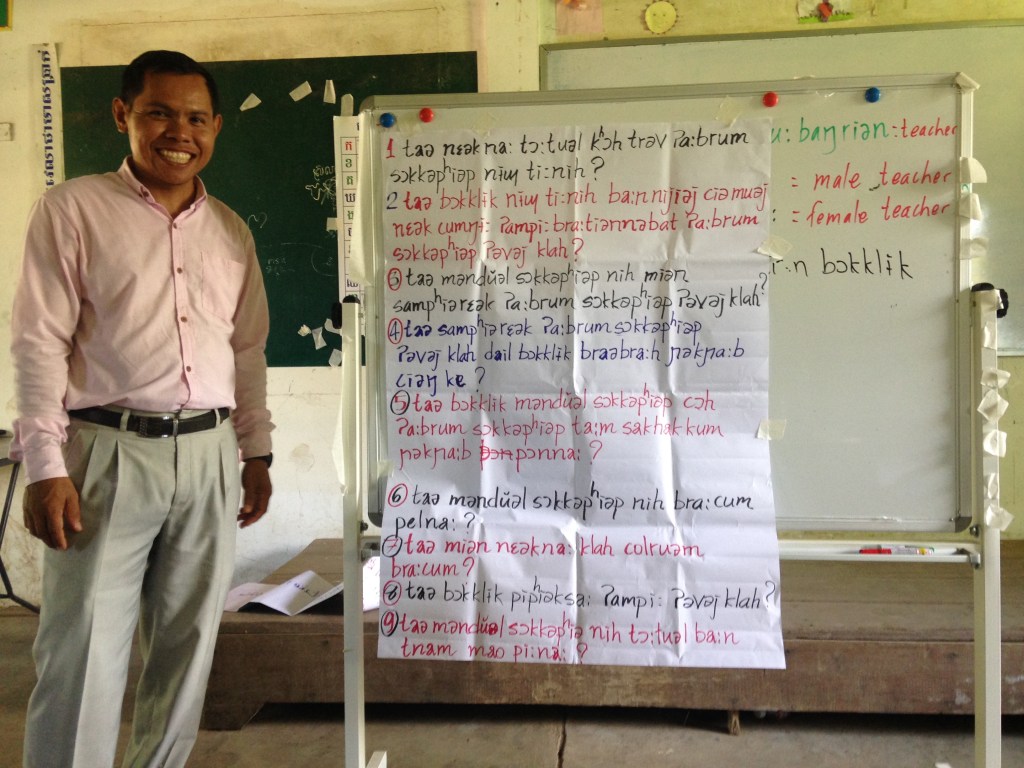 1 taə nɛəkna: tɔ:tuəl kʰɔh trəv ʔa:brum
sɔkkəpʰiəp nɨɯ ti:nih ?
2 taə bɔkklik nɨɯ ti:nih ba:n nijiəj ciəmuəj
nɛək cumŋɨ: ʔampi: bra:tiənnəbat ʔa:brum
sɔkkəpʰiəp ʔəvəj klah ?
3 taə məndŭəl sɔkkəpʰiəp nih miən
sampʰiərɛək ʔa:brum sɔkkəpʰiəp ʔəvəj klah ?
4 taə sampʰiərɛək ʔa:brum sɔkkəpʰiəp
ʔəvəj klah dail bɔkklik braəbra:h ɲəkɲa:b
ciəŋ ke ?
5 taə bɔkklik məndŭəl sɔkkəpʰiəp cɔh
ʔa:brum sɔkkəpʰiəp ta:m sakhak kum
ɲəkɲa:b pɔnna: ?
6 taə məndŭəl sɔkkəpʰiəp nih bra:cum
pelna: ?
7 taə miən nɛəkna: klah colruəm
bra:cum ?
8 taə bɔkklik pipʰiəksa: ʔampi: ʔəvəj klah ?
9 taə məndŭəl sɔkkəpʰiə nih tɔ:tuəl ba:n
tnam mao pi:na: ?
u: baŋriən : teacher
= male teacher
: = female teacher
bɔkklik